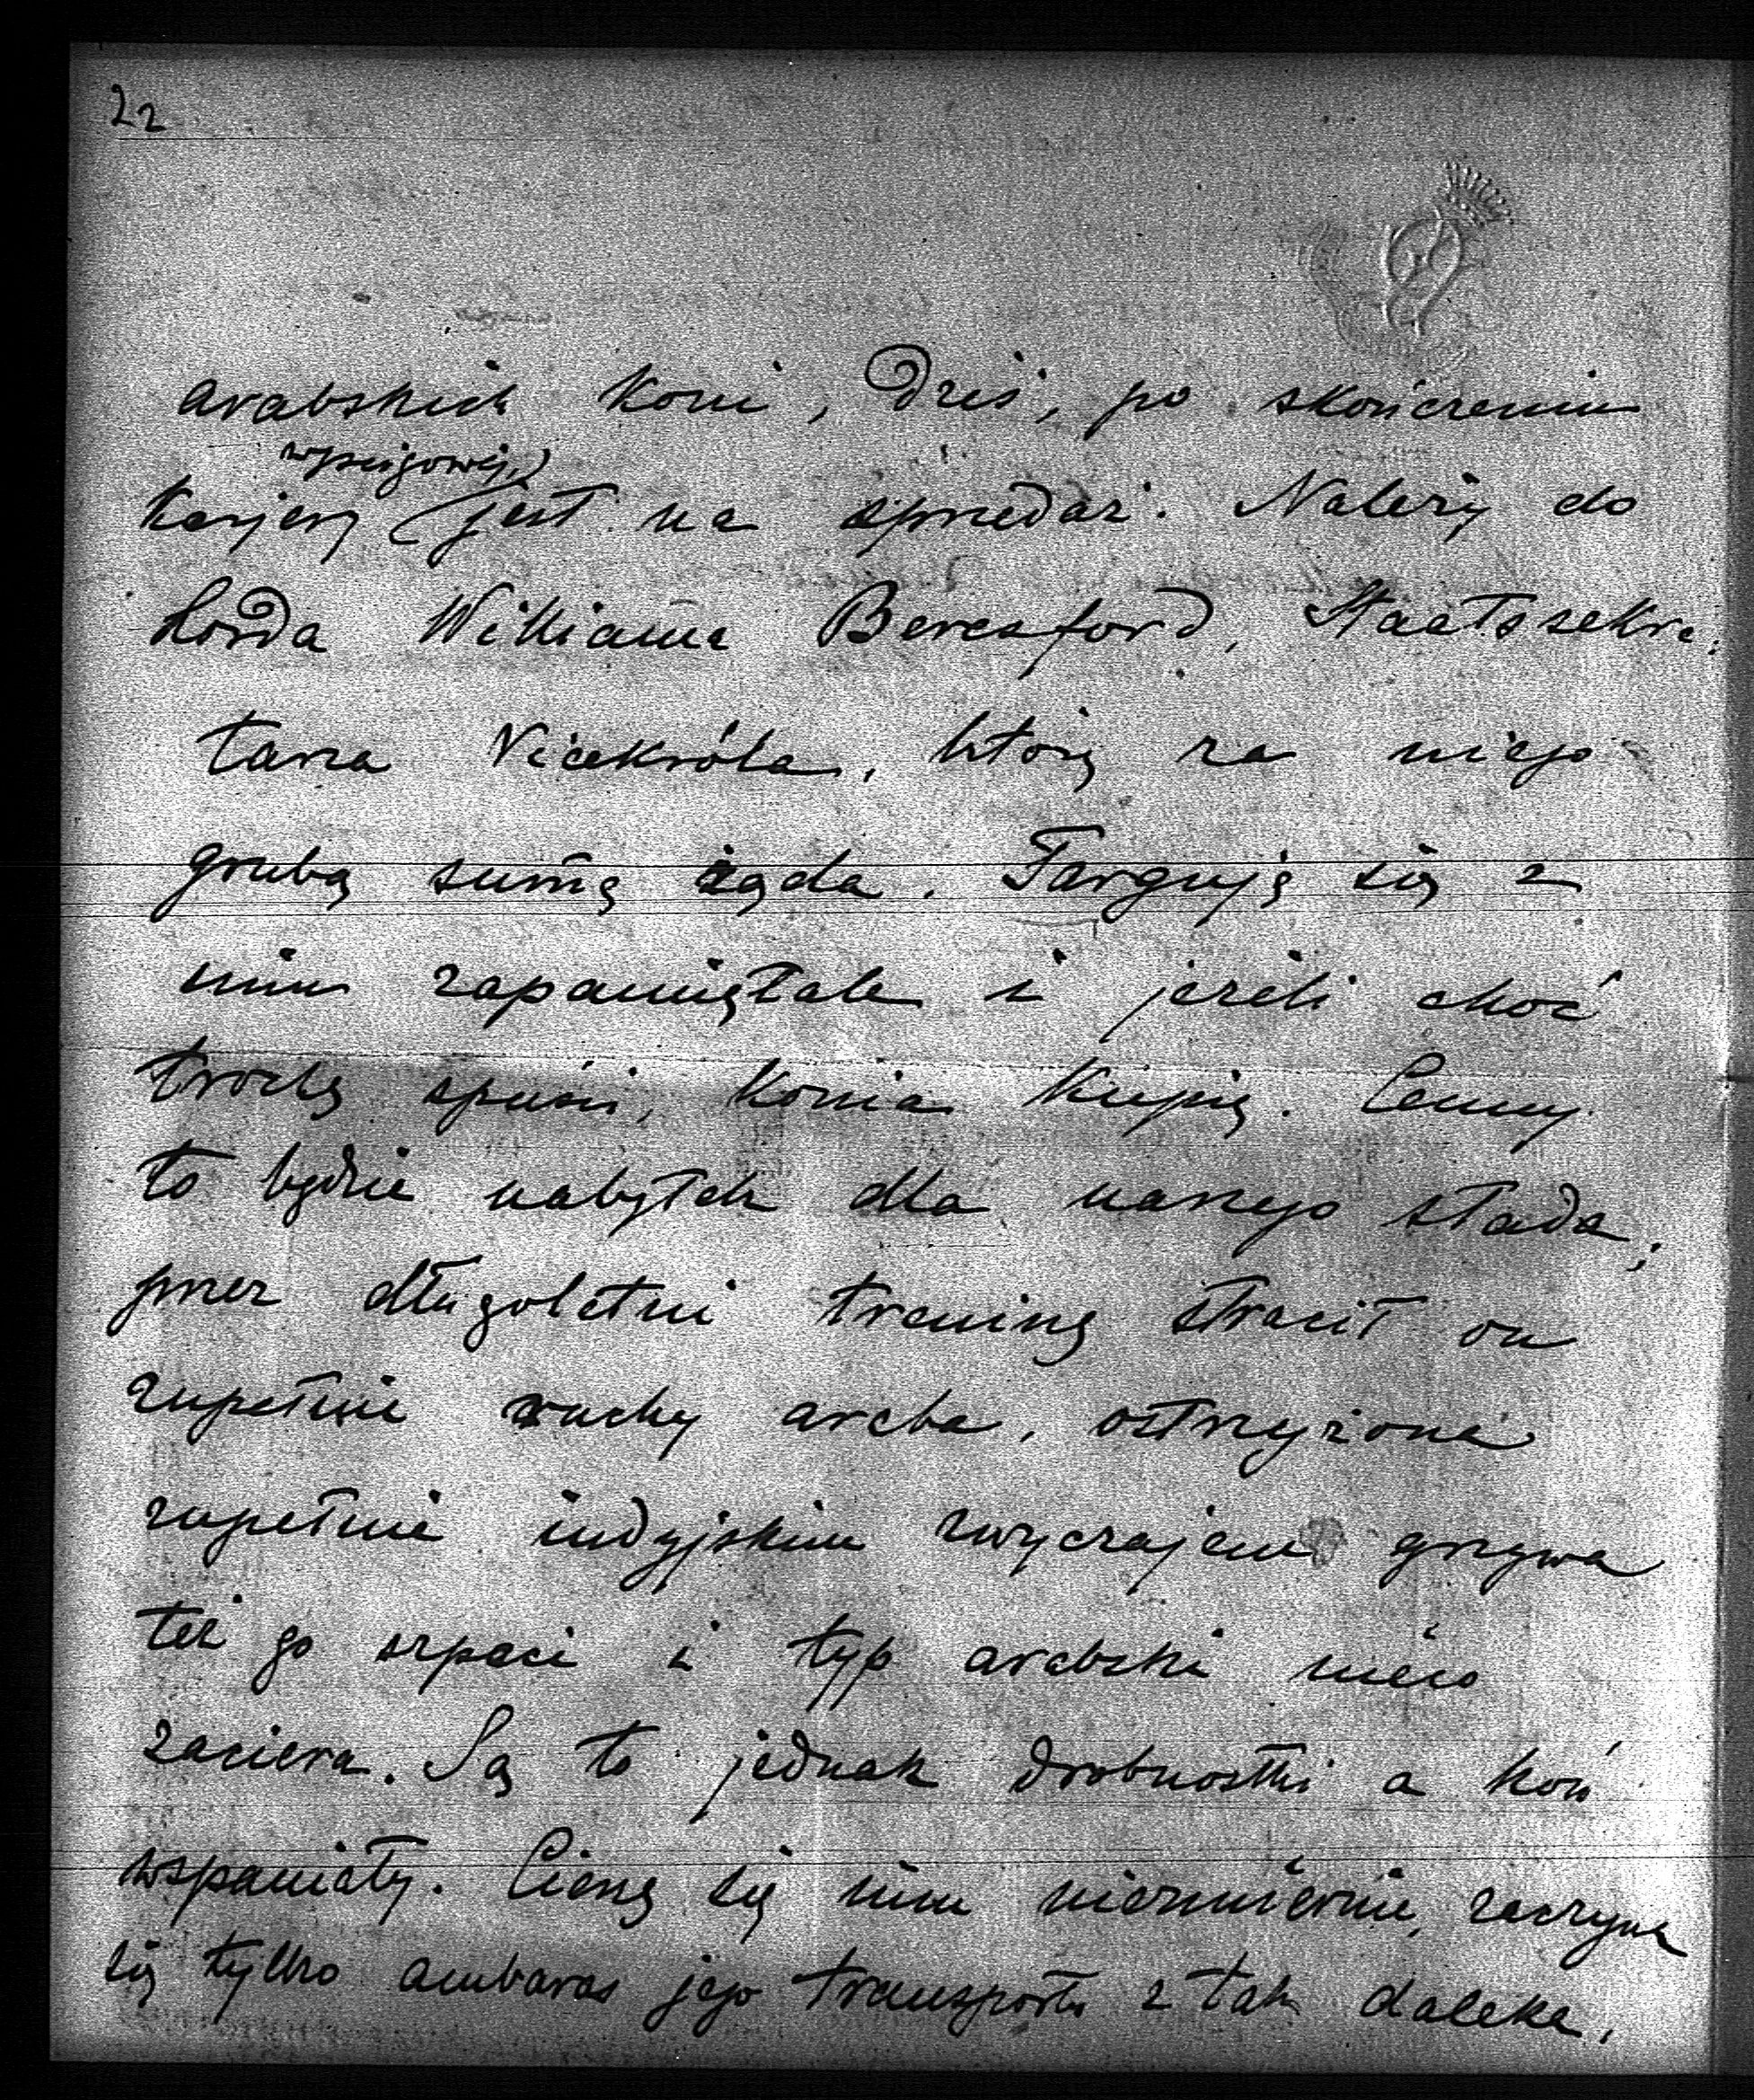 22
arabskich koni, Dziś, po skończeniu
wyścigowej,
karjery jest na sprzedaż. Należy do
Lorda Williama Beresford, Staatssekre-
tarza Vicekróla, który za niego
grubą sumę żąda. Targuję się z
nim zapamiętale i jeżeli choć
trochę spuści, konia kupię. Cenny
to będzie nabytek dla naszego stada,
przez długoletni trening stracił on
zupełnie ruchy araba, ostrzyżona
zupełnie indyjskim zwyczajem grzywa
też go szpeci i typ arabski nieco
zaciera. Są to jednak drobnostki a koń
wspaniały. Cieszę się nim niezmiernie, zaczyna
się tylko ambaras jego transportu z tak daleka.